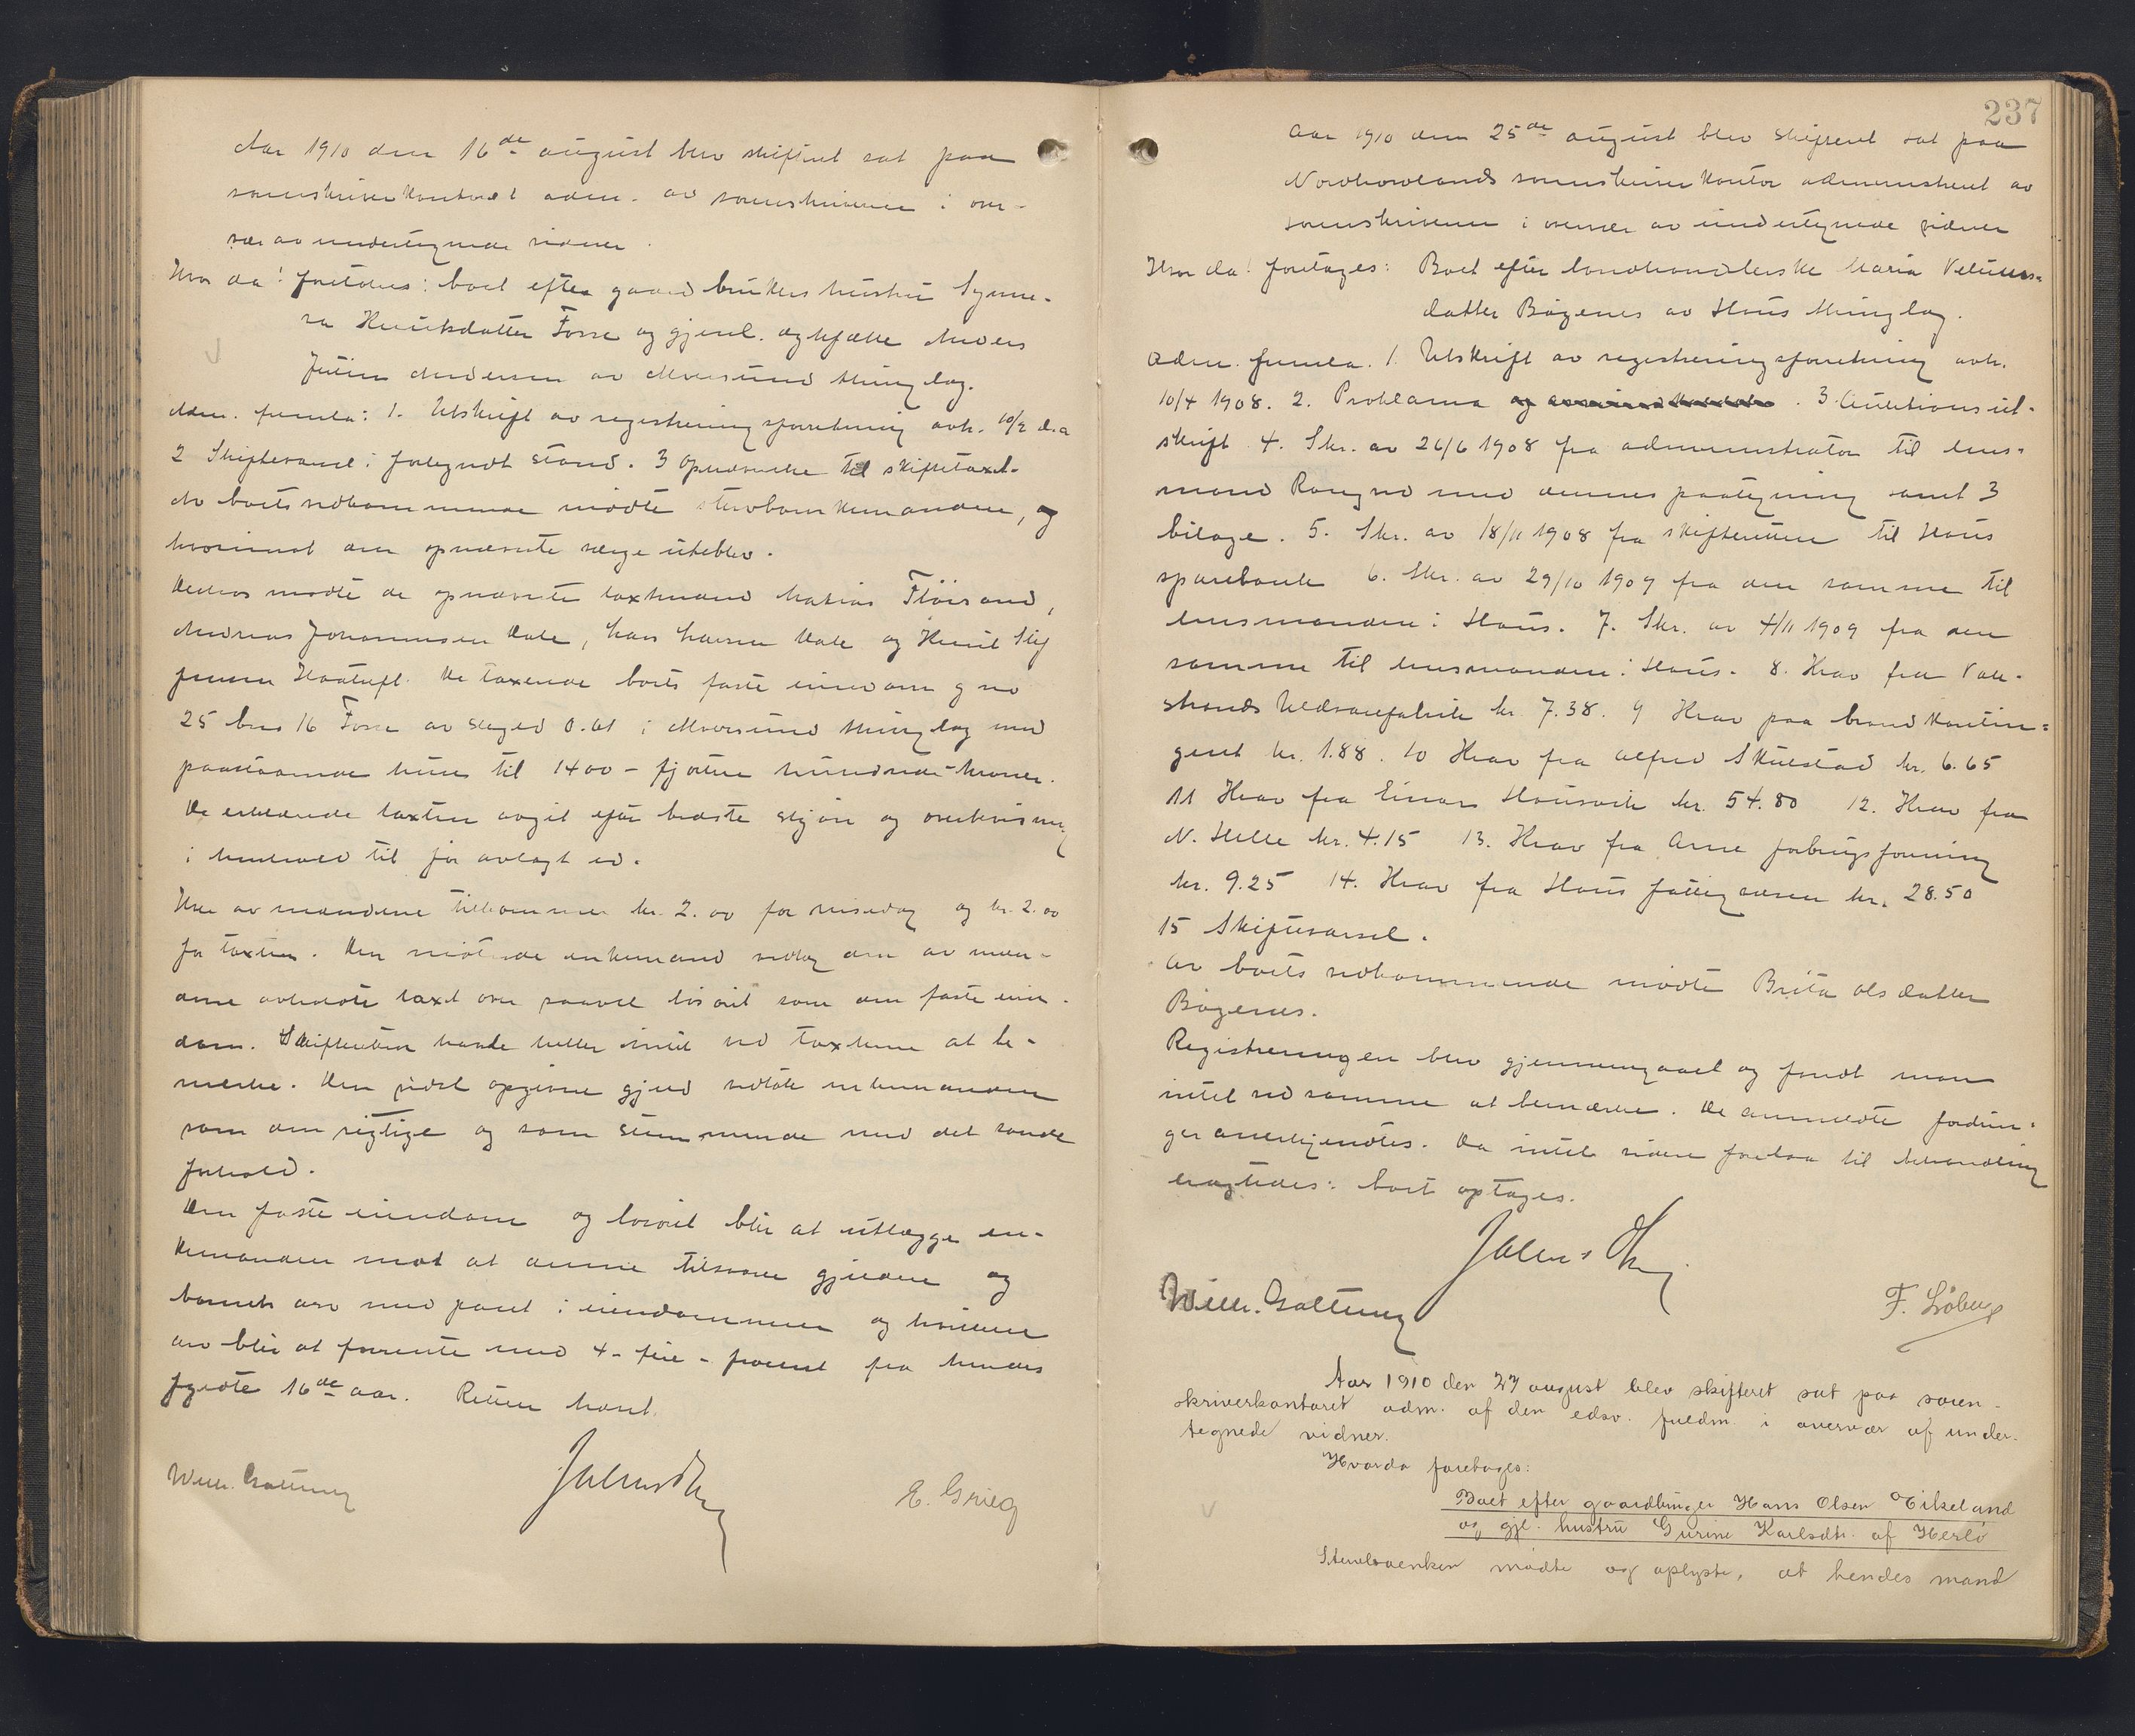 Aar 1910 den 16de august blev skifteret sat paa
sorenskriverkontoret adm. av sorenskriveren i over-
vær av undertegnede vidner.
Hvor da! foretoges: boet efter gaardbrukers hustru Synne-
va Henriksdatter Fosse og gjenl. egtefælle Anders
Juün Andersen av Alversund thinglag.
Adm. freml: 1. Utskrift av registreringsforretning avh. 10/2 d.a
2 Skiftevarsel i forkyndt stand. 3 Opnævnelse til skiftetaxt.
Av boets vedkommende mødte sterboenkemanden, og
hvorimot den opnævnte verge uteblev.
Derhos mødte de opnævnte taxtmænd Matias Fløisand,
Andreas Johannessen Hole, Hans Larsen Hole og Henrik
Haatuft. De taxerede boets faste eiendom g no
25 brno 16 Fosse av skyld 0.61 i Alversund thinglag med
paastaaende huse til 1400 - fjorten hundrede - kroner.
De erklærede taxten avgit efter bedste skjøn og overbevisning
i henhold til før avlagt ed.
Hver av mændene tilkommer kr. 2.00 for reisedag og kr. 2.00
for taxten. Den møtende enkemand vedtog den av mæn-
dene avholdte taxt over saavel løsøre som den faste eien-
dom. Skifteretten havde heller intet ved taxterne at be-
merke. Den sidst opgivne gjæld vedtok enkemanden
som den rigtige og som stemmende med det sande
forhold.
Den faste eiendom og løsøre blir at utlægge en-
kemanden mot at denne tilsvarer gjælden og
barnets arv med pant i eiendommen og hvilken
arv blir at forrente med 4 - fire - procent fra hendes
fyldte 16de aar. Retten hævet.
Wilh. Galtung
E. Grieg
237
Aar 1910 den 25de august blev skifteret sat paa
Nordhordlands sorenskriverkontor administreret av
sorenskriveren i overvær av undertegnede vidner
Hvor da! foretages: Boet efter landhandlerske Maria Vellums-
datter Bøgenes av Haus thinglag.
Adm. fremla. 1. Utskrift av registreringsforretning avh.
10/4 1908. 2. Proklama og . 3. Auktionsut-
skrift 4. Skr. av 26/6 1908 fra administrator til lens-
mand Rongved med dennes paategning samt 3
bilage. 5. Skr. av 18/11 1908 fra skifteretten til Haus
sparebank 6. Skr. av 29/10 1909 fra den samme til
lensmanden i Haus. 7. Skr. av 4/11 1909 fra den
samme til lensmanden i Haus. 8. Krav fra Vale-
strands Uldvarefabrik kr. 7.38. 9 Krav paa brandkontin-
gent kr. 1.88. 10 Krav fra Alfred Skulstad kr. 6.65
11 Krav fra Einar Hausvik kr. 54.80 12. Krav fra
N. Helle kr. 4.15 13. Krav fra Arne forbrugsforening
kr. 9.25 14. Krav fra Haus fattigvæsen kr. 28.50
15 Skiftevarsel.
Av boets vedkommende mødte Brita Olsdatter
Bøgenes.
Registreringen blev gjennemgaaet og fandt man
intet ved samme at bemerke. De anmeldte fordrin-
ger anerkjendtes. Da intet videre forelaa til behandling
eragtedes: boet optages.
Wilh. Galtung
F. Løberg
Aar 1910 den 27 august blev skifteret sat paa soren-
skriverkontoret adm. af den edsv. fuldm. i overvær af under-
tegnede vidner.
Hvorda foretoges:
Boet efter gaardbruger Hans Olsen Eikeland
og gjl. hustru Gurine Karlsdtr. af Herlø
Stervboenken mødte og oplyste, at hendes mand